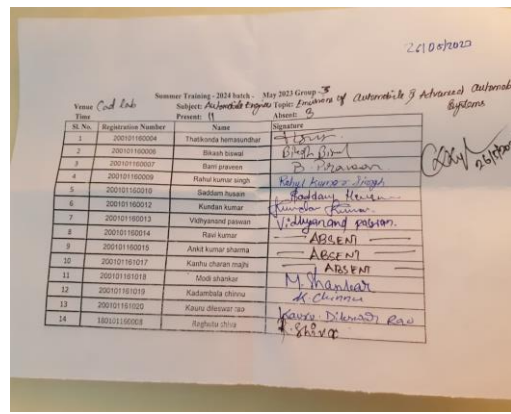 26/05/2023
Summer Training - 2024 batch - May 2023 Group - 3
Venue Cad lab Subject: Automobile Engines Topic: Emissions of automobile & Advanced automobile Systems
Time Present: 11 Absent: 3
Sl. No. Registration Number Name Signature
1 200101160004 Thatikonda hemasundhar
2 200101160006 Bikash biswal
3 200101160007 Bami praveen B. Praveen
4 200101160009 Rahul kumar singh Rahul Kumar Singh
5 200101160010 Saddam husain Saddam Husain
6 200101160012 Kundan kumar Kundan Kumar
7 200101160013 Vidhyanand paswan Vidhyanand paswan
8 200101160014 Ravi kumar ABSENT
9 200101160015 Ankit kumar sharma ABSENT
10 200101161017 Kanhu charan majhi ABSENT
11 200101161018 Modi shankar M. Shankar
12 200101161019 Kadambala chinnu K. Chinnu
13 200101161020 Kauru dileswar rao Kauru Dileswar Rao
14 180101160003 Reghutu shiva R. Shiva